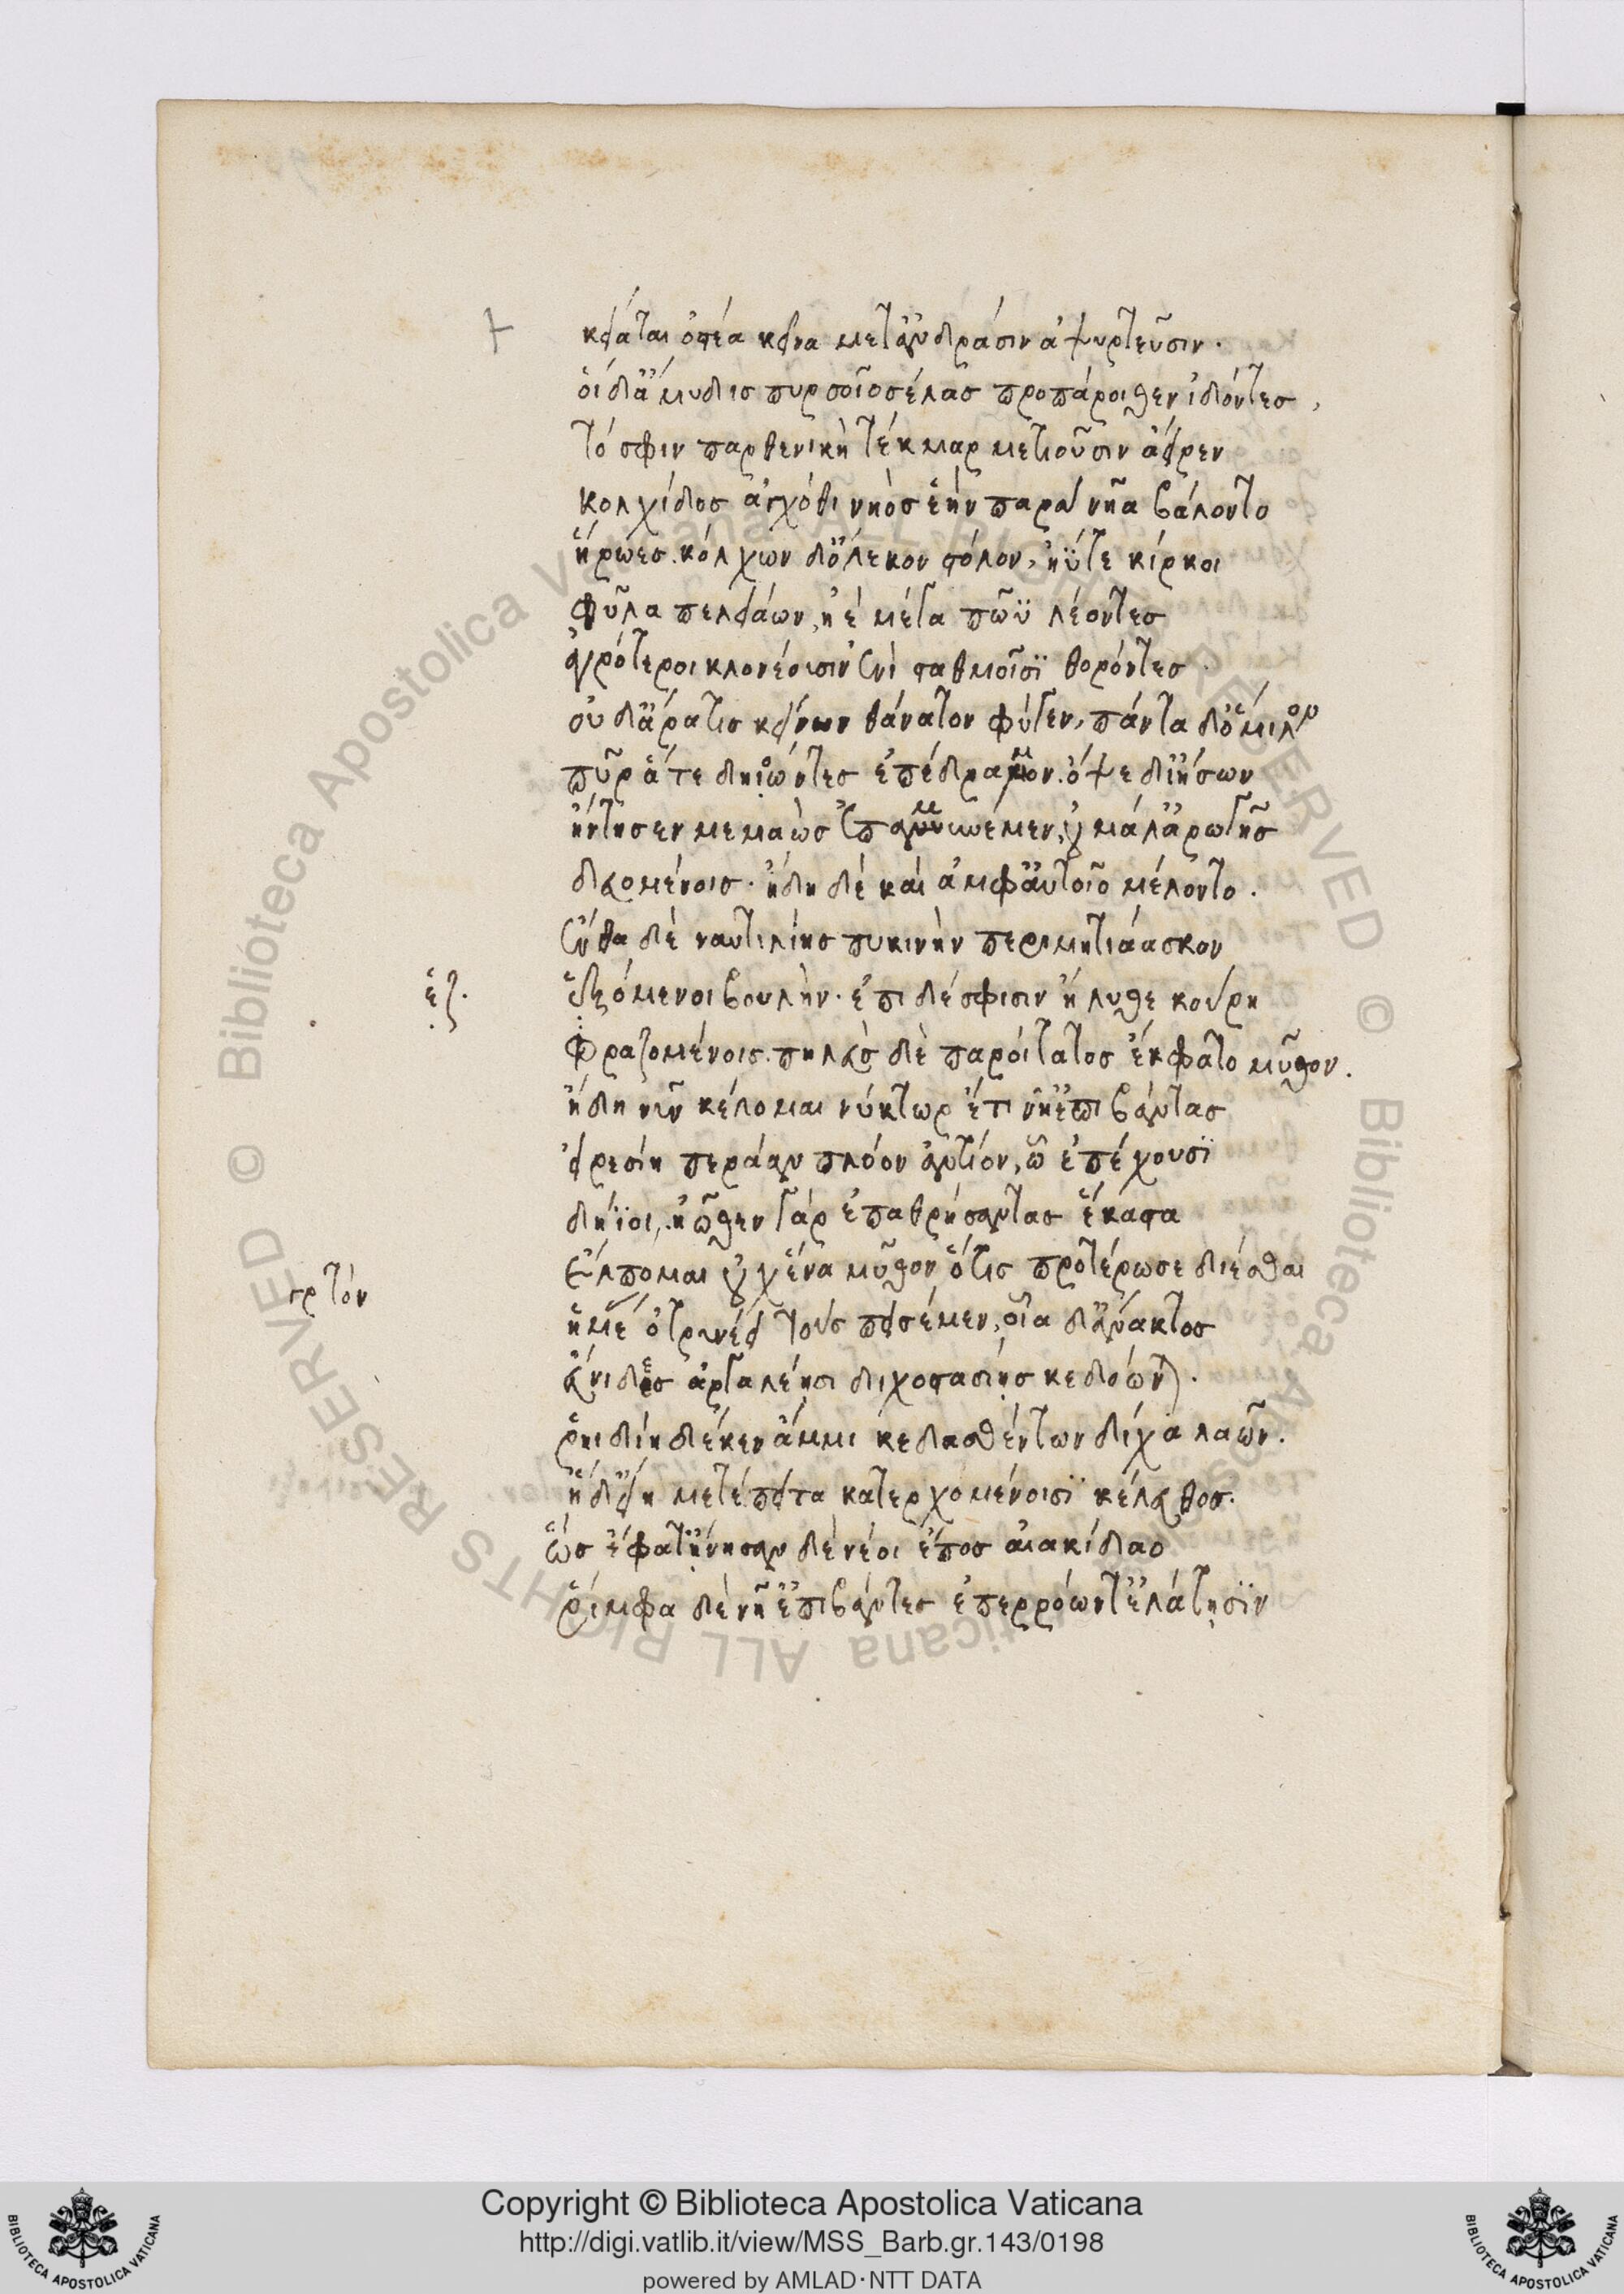 κείαται ὀστέα κεῖνα μετ' ἀνδράσιν ἀψυρτεῦσιν.
οἱ δ' ἄμυδις πυρσοῖο σέλας προπάροιθεν ἰδόντες,
τό σφιν παρθενικὴ τέκμαρ μετιοῦσιν ἄειρεν
κολχίδος ἀγχόθι νηὸς ἑὴν παρὰ νῆα βάλοντο
ἥρωες. κόλχων δ' ὄλεκον στόλον, ἠΰτε κίρκοι
φῦλα πελειάων, ἠὲ μέγα πῶϋ λέοντες
ἀγρότεροι κλονέουσιν ἐνὶ σταθμοῖσϊ θορόντες.
οὐδ' ἄρα τις κείνων θάνατον φύγεν, πάντα δ' ὅμιλον
πῦρ ἅτε δηιόωντες ἐπέδραμον. ὀψὲ δ' ἰήσων
ἤντησεν μεμαὼς ἐπαμυνέμεν, οὐ μάλ' ἀρωγῆς
δευομένοις. ἤδη δὲ καὶ ἀμφ' αὐτοῖο μέλοντο.
ἔνθα δὲ ναυτιλίης πυκινὴν περιμητιάασκον
ἑζ.
ἑξόμενοι βουλὴν. ἐπὶ δέ σφισιν ἤλυθε κούρη
φραζομένοις. πηλεὺς δὲ παροίτατος ἔκφατο μῦθον.
ἤδη νῦν κέλομαι νύκτωρ ἔτι νῆ' ἐπιβάντας
εἰρεσίη περάαν πλόον ἀντίον, ᾧ ἐπέχουσϊ
δήϊοι, ἠῶθεν γὰρ ἐπαθρήσαντας ἕκαστα
ἔλπομαι οὐχ ἕνα μῦθον ὅτις προτέρωσε δίεσθαι
ἡμέ ὀτρυνέει τοὺς πεισέμεν, οἷα δ' ἄνακτος
εὔνιδες ἀργαλέῃσι διχοστασίῃς κεδόωνται.
ῥηιδίη δέ κεν ἄμμι κεδασθέντων δίχα λαῶν.
ἥδ' εἴη μετέπειτα κατερχομένοισϊ κέλευθος.
ὣς ἔφατ' ᾔνησαν δὲ νέοι ἔπος αἰακίδαο
ῥίμφα δὲ νῆ' ἐπιβάντες ἐπερρώοντ' ἐλάτῃσϊν
Copyright © Biblioteca Apostolica Vaticana
http://digi.vatlib.it/view/MSS_Barb.gr.143/0198
powered by AMLAD·NTT DATA